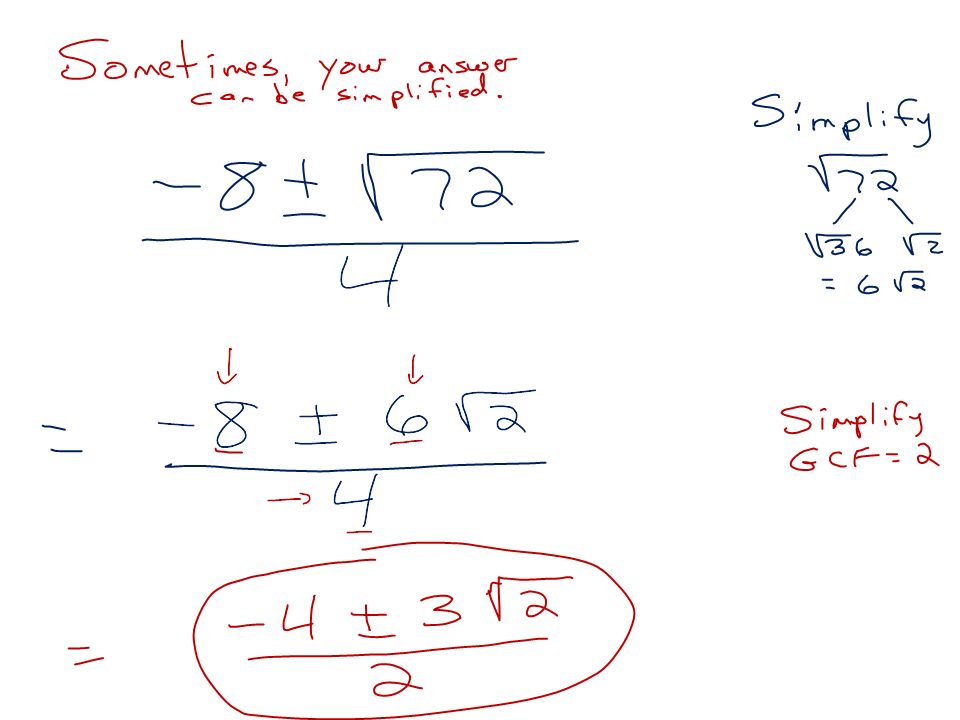 Sometimes, your answer
can be simplified.
-8 ± √72
4
Simplify
√72
√36 √2
= 6 √2
= -8 ± 6 √2
→ 4
Simplify
GCF = 2
= -4 ± 3 √2
2